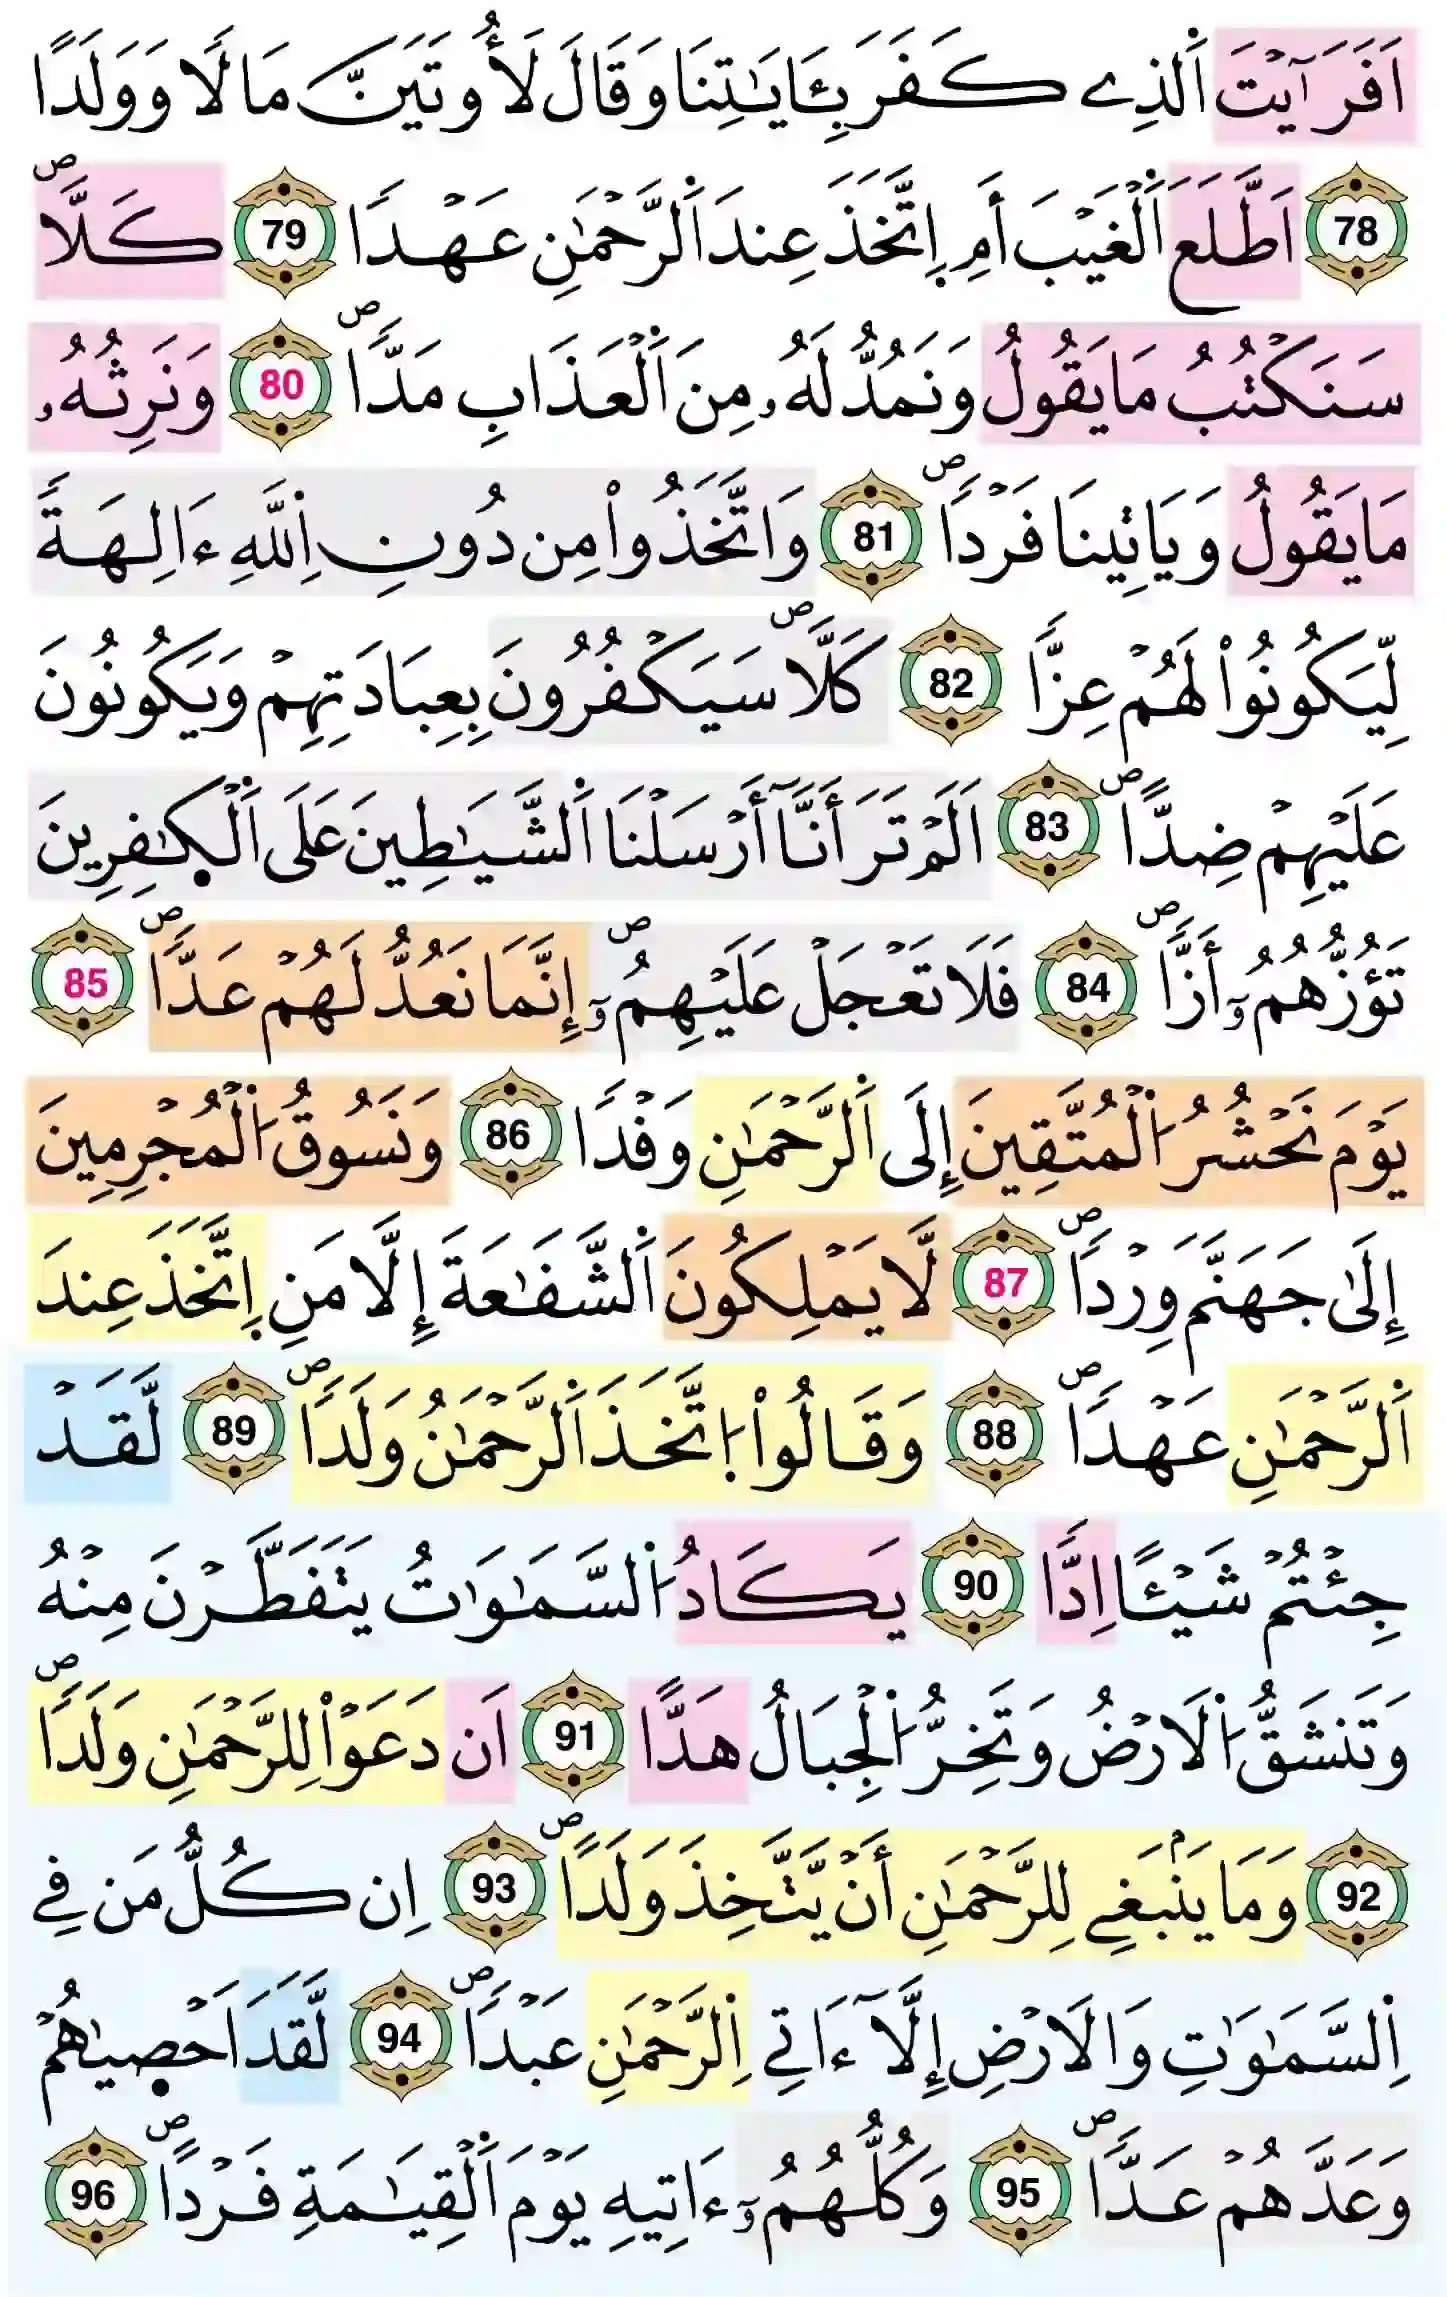 اَفَرَ اٰيْتَ اَ۬لذِے كَفَرَ بِـَٔايَٰتِنَا وَقَالَ لَأُوتَيَنَّ مَالاٗ وَوَلَداً
78 اَطَّلَعَ اَ۬لْغَيْبَ أَمِ اِ۪تَّخَذَ عِندَ اَ۬لرَّحْمَٰنِ عَهْداٗ 79 كَلَّاۖ
سَنَكْتُبُ مَا يَقُولُ وَنَمُدُّ لَهُۥ مِنَ اَ۬لْعَذَابِ مَدّاٗۖ 80 وَنَرِثُهُۥ
مَا يَقُولُ وَيَاتِينَا فَرْداٗۖ 81 وَاتَّخَذُواْ مِن دُونِ اِ۬للَّهِ ءَالِهَةٗ
لِّيَكُونُواْ لَهُمْ عِزّاٗ 82 كَلَّاۖ سَيَكْفُرُونَ بِعِبَادَتِهِمْ وَيَكُونُونَ
عَلَيْهِمْ ضِدّاًۖ 83 اَلَمْ تَرَ أَنَّآ أَرْسَلْنَا اَ۬لشَّيَٰطِينَ عَلَى اَ۬لْكٰ۪فِرِينَ
تَؤُزُّهُمُۥٓ أَزّاٗۖ 84 فَلَا تَعْجَلْ عَلَيْهِمُۥٓۖ إِنَّمَا نَعُدُّ لَهُمْ عَدّاٗۖ 85
يَوْمَ نَحْشُرُ اُ۬لْمُتَّقِينَ إِلَى اَ۬لرَّحْمَٰنِ وَفْداٗ 86 وَنَسُوقُ اُ۬لْمُجْرِمِينَ
إِلَىٰ جَهَنَّمَ وِرْداٗۖ 87 لَّا يَمْلِكُونَ اَ۬لشَّفَٰعَةَ إِلَّا مَنِ اِ۪تَّخَذَ عِندَ
اَ۬لرَّحْمَٰنِ عَهْداٗۖ 88 وَقَالُواْ اُ۪تَّخَذَ اَ۬لرَّحْمَٰنُ وَلَداٗۖ 89 لَّقَدْ
جِئْتُمْ شَيْـٔاً اِدّاٗ 90 يَكَادُ اُ۬لسَّمَٰوَٰتُ يَتَفَطَّرْنَ مِنْهُ
وَتَنشَقُّ اُ۬لَارْضُ وَتَخِرُّ اُ۬لْجِبَالُ هَدّاً 91 اَن دَعَوْاْ لِلرَّحْمَٰنِ وَلَداٗۖ
92 وَمَا يَنۢبَغِے لِلرَّحْمَٰنِ أَنْ يَّتَّخِذَ وَلَداًۖ 93 اِن كُلُّ مَن فِے
اِ۬لسَّمَٰوَٰتِ وَالَارْضِ إِلَّآ ءَاتِے اِ۬لرَّحْمَٰنِ عَبْداٗۖ 94 لَّقَدَ اَحْص۪يٰهُمْ
وَعَدَّهُمْ عَدّاٗۖ 95 وَكُلُّهُمُۥٓ ءَاتِيهِ يَوْمَ اَ۬لْقِيَٰمَةِ فَرْداًۖ 96